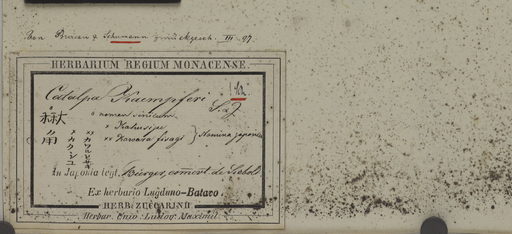 Von Bureau & Schumann zurückgesch. III. 97.
HERBARIUM REGIUM MONACENSE.
Catalpa Kaempferi
S. & Z.
° nomen sinicum
× Kakusiju
×× Kawara fisagi } Nomina japonica
カクシユ
カワラヒサギ
In Japonia legt. Bürger, comort. de Siebold
Ex herbario Lugduno-Batavo.
HERB. ZUCCARINII
Herbar. Univ. Ludov. Maximil.